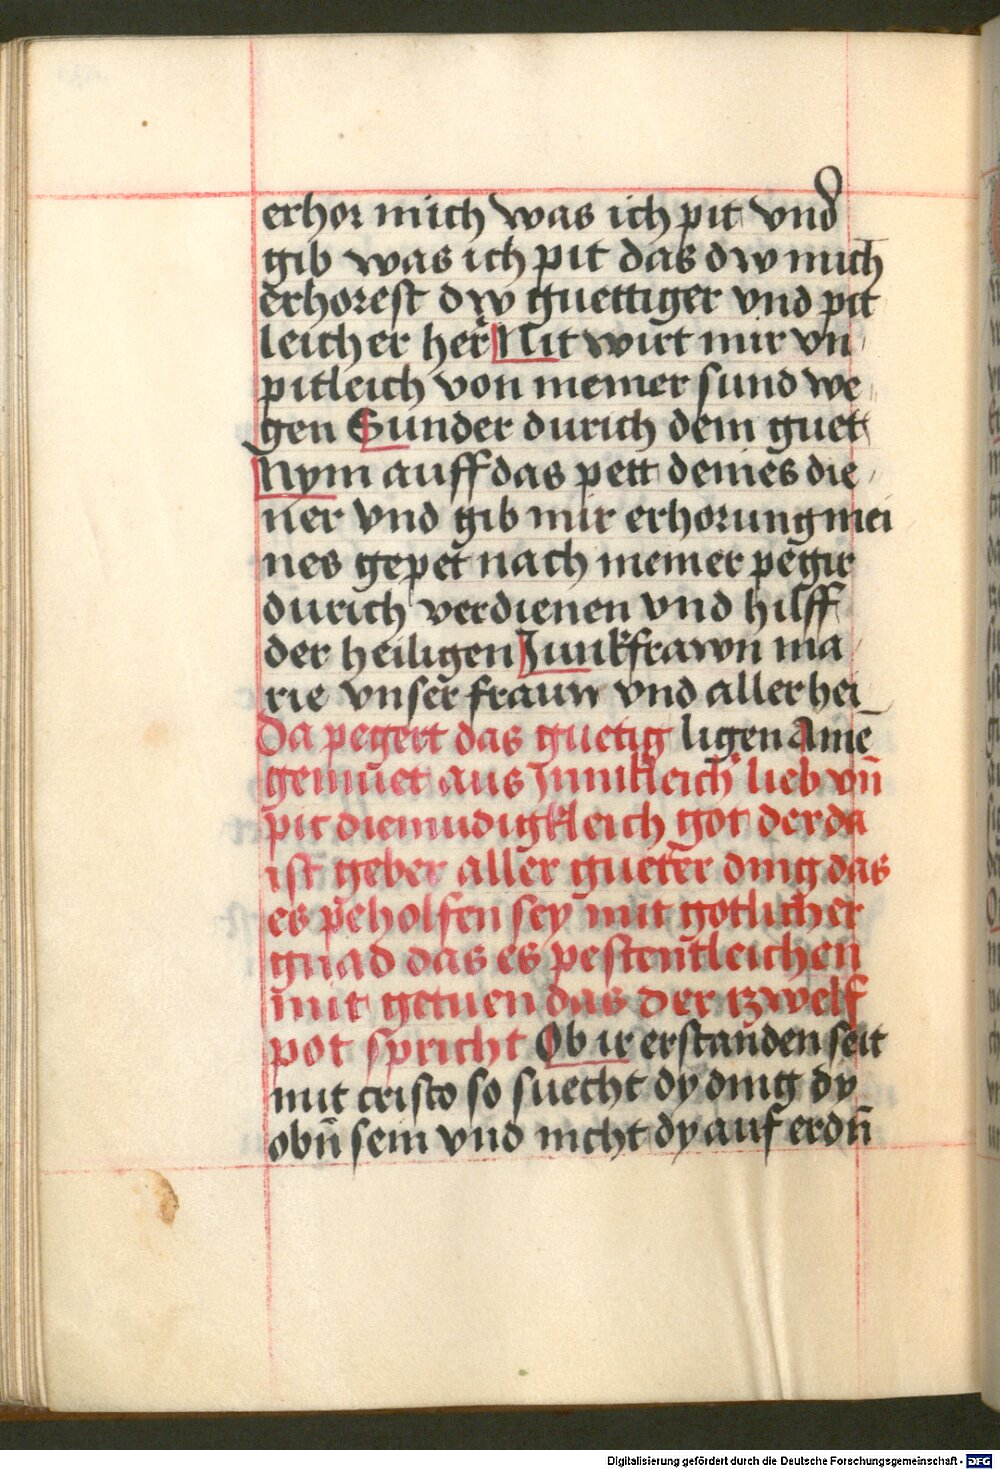 erhor mich was ich pit vnd
gib was ich pit das dw mich
erhorest dw guettiger vnd pit
leicher her Nit wirt mir vn
pitleich von meiner sund we
gen Sunder durich dein guet
Nym auff das pett deines die
ner vnd gib mir erhorung mei
nes gepet nach meiner pegir
durich verdienen vnd hilff
der heiligen Junkfrawn ma
rie vnser frauw vnd aller hei
ligen Amē
Da pegert das guetig
gemuet aus Jnnikleich lieb vn̄
pit diemudigkleich got der da
ist geber aller gueter ding das
es peholfen sey mit gotlicher
gnad das es pestentleichen
mit getuen das der tzwelf
pot spricht Ob ir erstanden seit
mit cristo so suecht dy ding dy
obn̄ sein vnd nicht dy auf erdn̄
Digitalisierung gefördert durch die Deutsche Forschungsgemeinschaft - DFG